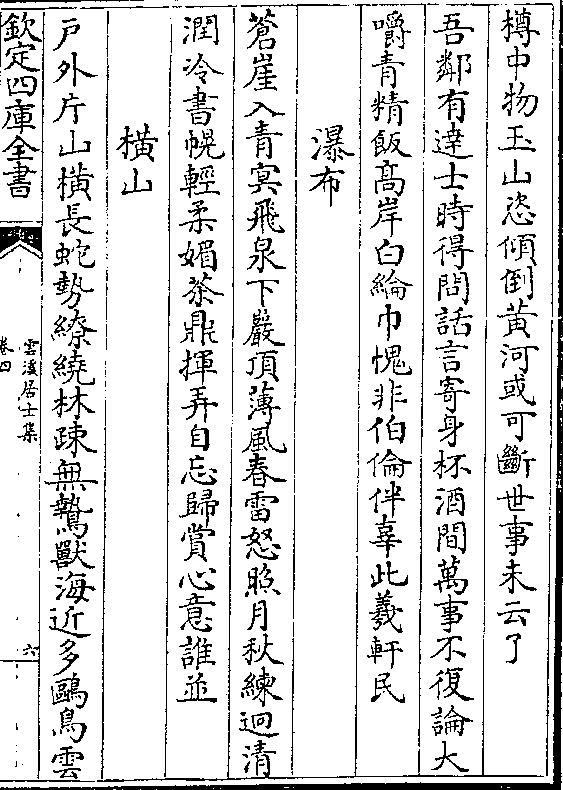 樽中物玉山恣傾倒黃河或可斷世事未云了
吾鄰有達士時得問話言寄身杯酒間萬事不復論大
嚼青精飯髙岸白綸巾愧非伯倫伴辜此羲軒民
瀑布
蒼崖入青冥飛泉下巖頂薄風春雷怒照月秋練迥清
潤冷書幌輕柔媚茶鼎揮弄自忘歸賞心意誰並
橫山
戶外片山橫長蛇勢繚繞林疎無鷙獸海近多鷗鳥雲
欽定四庫全書
雲溪居士集
卷四
六